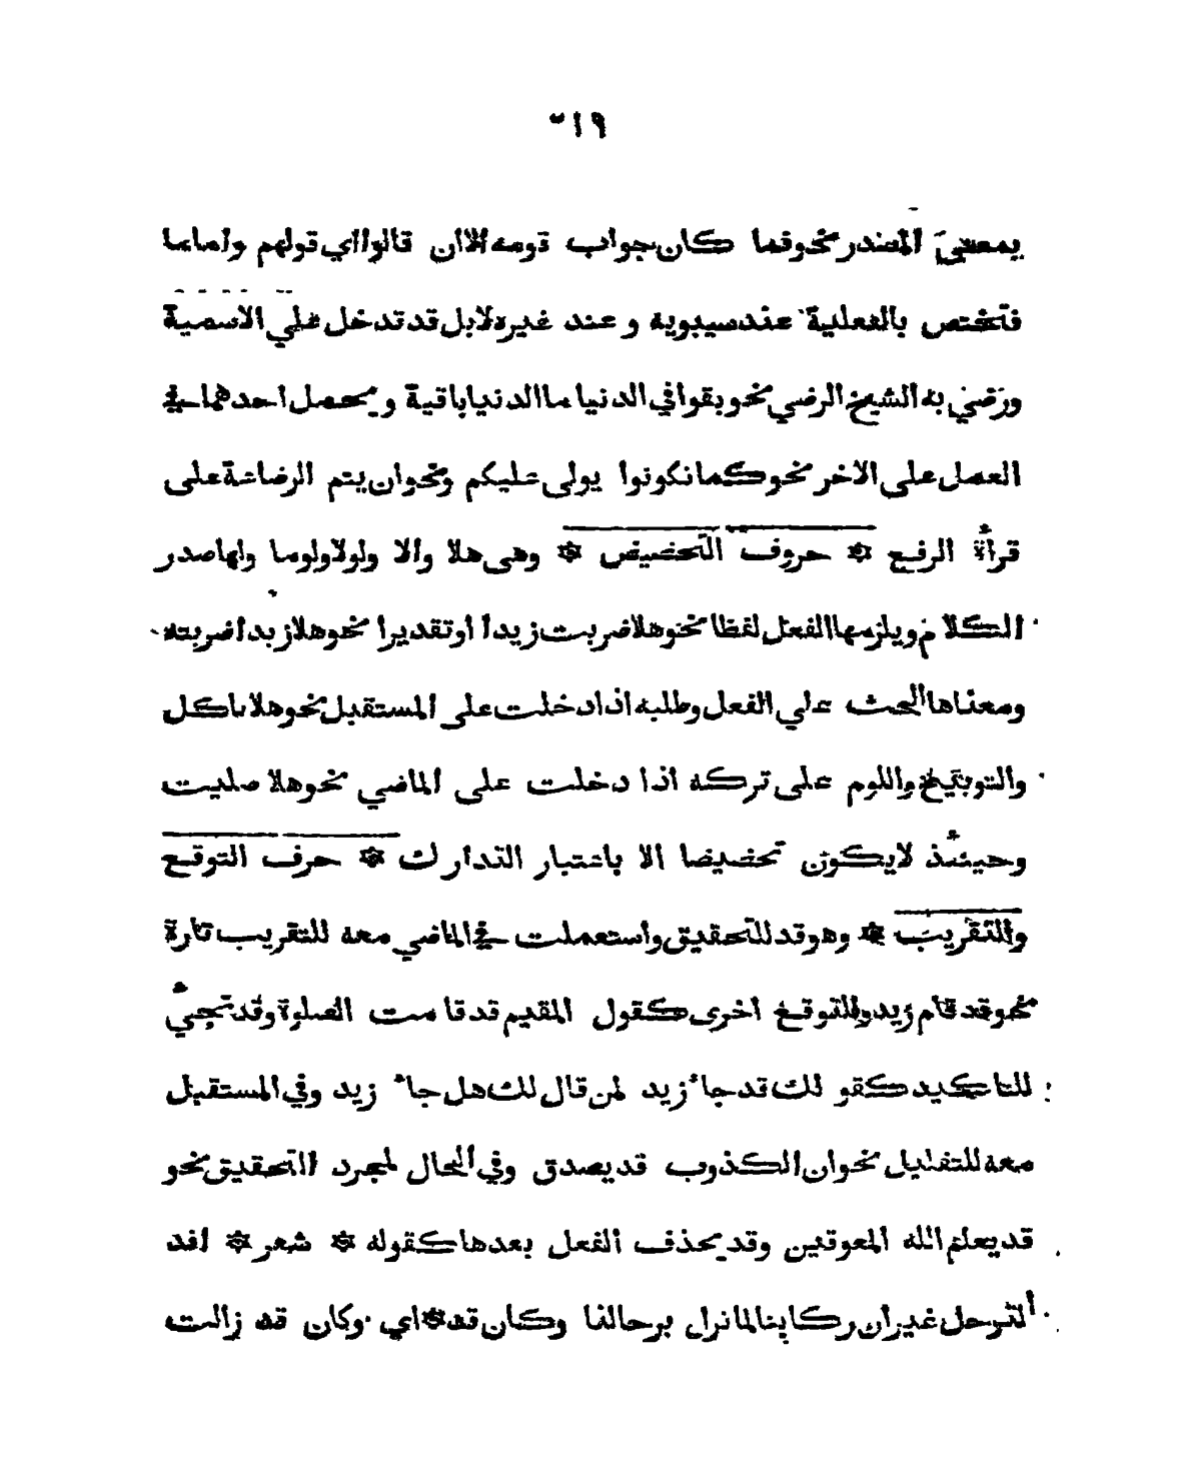 ٣١٩
بمعني المصدر نحو فما كان جواب قومه الا ان قالوا اي قولهم واما ما
فتختص بالفعلية عند سيبويه و عند غيره لا بل قد تدخل علي الاسمية
ورضي به الشيخ الرضي نحو بقوا في الدنيا ما الدنيا باقية و يحمل احدهما في
العمل على الاخر نحو كما تكونوا يولى عليكم ونحو ان يتم الرضاعة على
قرأة الرفع ۞ حروف التحضيض ۞ وهى هلا والا ولولا ولوما ولها صدر
الكلام ويلزمها الفعل لفظا نحو هلا ضربت زيدا او تقديرا نحو هلا زيدا ضربته
ومعناها الحث علي الفعل وطلبه اذا دخلت على المستقبل نحو هلا تاكل
والتوبيخ واللوم على تركه اذا دخلت على الماضي نحو هلا صليت
وحينئذ لايكون تحضيضا الا باعتبار التدارك ۞ حرف التوقع
والتقريب ۞ وهو قد للتحقيق واستعملت في الماضي معه للتقريب تارة
نحو قد قام زيد وللتوقع اخرى كقول المقيم قد قامت الصلوة وقد تجيئ
للتاكيد كقولك قد جاء زيد لمن قال لك هل جاء زيد وفي المستقبل
معه للتقليل نحو ان الكذوب قد يصدق وفي الحال لمجرد التحقيق نحو
قد يعلم الله المعوقين وقد يحذف الفعل بعدها كقوله ۞ شعر ۞ افد
الترحل غير ان ركابنا لما نزل برحالنا وكان قد ۞ اي وكان قد زالت